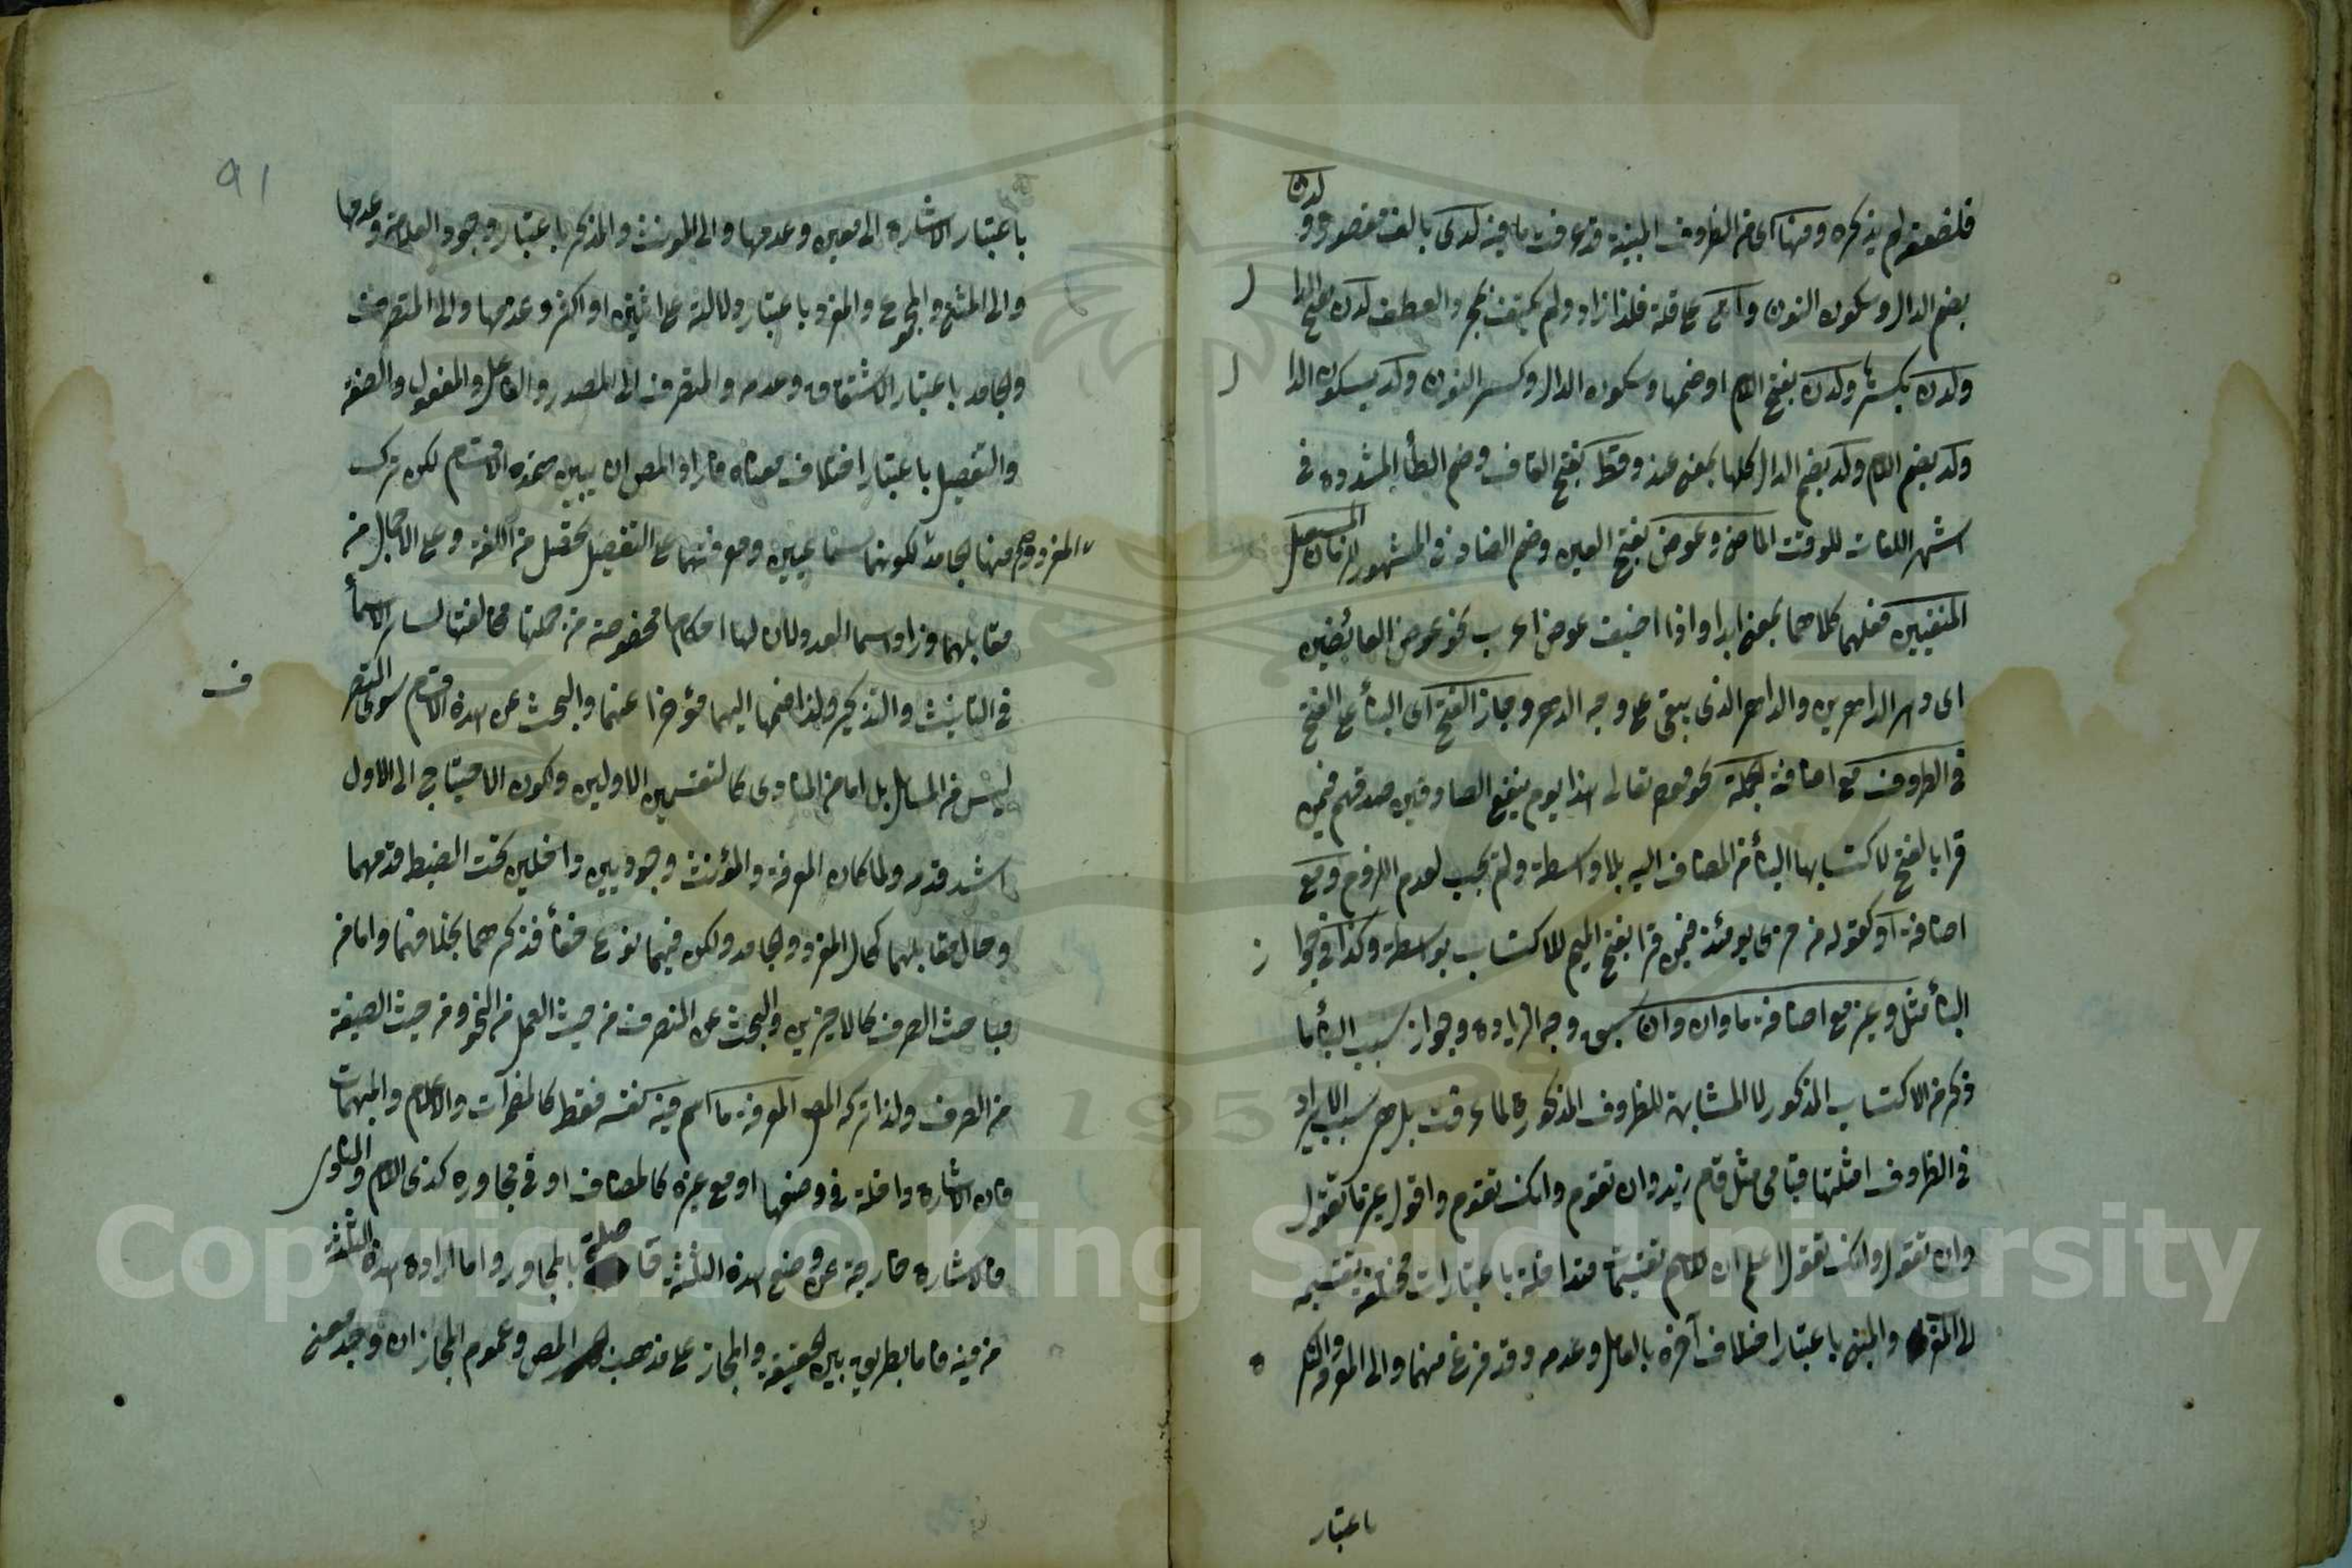 فلضعفه لم يذكره ومنها اى من الظروف المبنية قد عرفت ما فيه لدى بالف مقصورة ولدن
بضم الدال وسكون النون فلذا زاد ولم يكتف والعطف لدن بفتح الدا
ل
ولدن بكسرها ولدن بفتح اللام او ضمها وسكون الدال وكسر النون ولد بسكون الدا
ل
ولد بضم اللام ولد بضم الدال كلها بمعنى عند وقط بفتح القاف وضم الطاء المشددة فى
اشهر اللغات للوقت الماضى وعوض بفتح العين وضم الضاد فى المشهور للزمان المستقبل
المنفيين كلاهما بمعنى ابدا واذا اضيف عوض اعرب نحو عوض العائضين
اى دهر الداهرين والداهر الذى يبقى على وجه الدهر وجاز الفتح اى البناء على الفتح
فى الظروف مع اضافة لجملة نحو قوله تعالى هذا يوم ينفع الصادقين صدقهم فيمن
قرأ بالفتح لاكتسابها البناء من المضاف اليه بلا واسطة ولم يجب لعدم اللزوم ومع
اضافة اذ كقوله من خزى يومئذ فيمن قرأ بفتح الميم للاكتساب بواسطة وكذا فى جوا
ز
البناء مثل وغير مع اضافة ما وان وان سبق وجه الزيادة وجواز سبب البناء ما
ذكر من الاكتساب المذكور لا المشابهة للظروف المذكورة لما عرفت بل هو سبب لايراد
فى الظروف امثلتها قيامى مثل قام زيد وان تقوم وانك تقوم واقول غير ما تقول
وان تقول وانك تقول اعلم ان للاسم تقسيمات متداخلة باعتبارات مختلفة تقسيمه
الى المعرب والمبنى باعتبار اختلاف آخره بالعامل وعدمه وقد فرغ منهما والى المعرفة والنكرة
باعتبار
91
باعتبار الاشارة الى معين وعدمها والى المؤنث والمذكر باعتبار وجود العلامة وعدمها
والى المثنى والمجموع والمفرد باعتبار دلالته على اثنين او اكثر وعدمها والى المتصرف
والجامد باعتبار الاشتقاق وعدمه والمتصرف الى المصدر والفاعل والمفعول والصفة
والتفضيل باعتبار اختلاف معناه فاراد المص ان يبين هذه الاقسام لكن ترك
المفرد منها لجامد لكونهما سماعيين ومعرفتهما على التفصيل تحصل من اللغة وعلى الاجمال من
مقابلهما وزاد اسماء العدد لان لها احكاما مخصوصة من جملتها مخالفتها لسائر الاسماء
فى التأنيث والتذكير ولذا ضمها اليهما مؤخرا عنهما والبحث عن هذه الاقسام سوى المتصر
ف
ليس من المسائل بل اما من المبادى كالتقسيمين الاولين ولكون الاحتياج الى الاول
اشد قدمه ولما كان المعرفة والمؤنث وجوديين داخلين تحت الضبط قدمهما
وحال مقابلهما كحال المفرد والجامد ولكن فيهما نوع خفاء فذكرهما بخلافهما واما من
مباحث الصرف كالاخيرين والبحث عن المتصرف من حيث العمل من النحو ومن حيث الصيغة
من الصرف ولذا تركه المص المعرفة ما اسم فيه كفته فقط كالمضمرات والاعلام والمبهمات
فان الاشارة داخلة فى وضعها او مع غيره كالمضاف او فى مجاوره كذى اللام والمنادى
فالاشارة خارجة عن وضع هذه الثلثة حاصلة بالمجاور واما ارادة هذه الثلثة
من فيه فاما بطريق بين الحقيقة والمجاز على مذهب المص وعموم المجاز ان وجد معنى